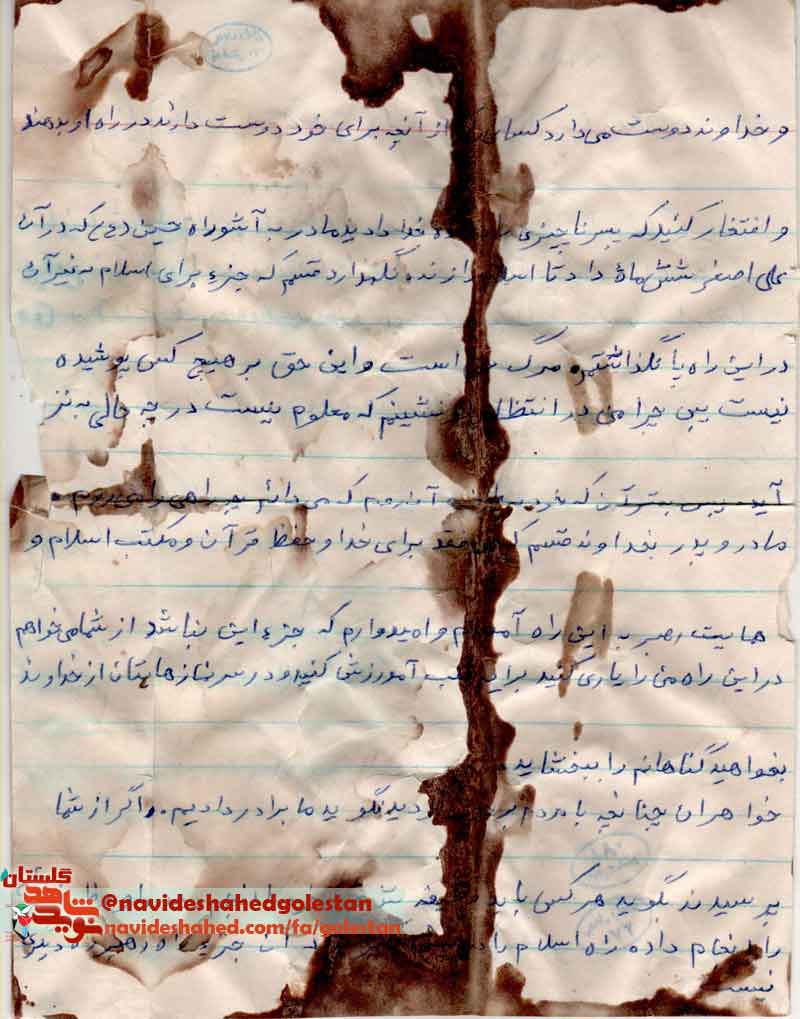 و خداوند دوست می دارد کسان از آنچه برای خود دوست دارند در راه او بدهند
و افتخار کنید که پسر ناچیزی خدا دادید مادر به آشوراه حسین (ع) که در آن
علی اصغر شش ماهٔ داد تا اسلام را زنده نگهدارد قسم که جزء برای اسلام به غیر آن
در این راه پا نگذاشتم مرگ است و این حق بر هیچ کس پوشیده
نیست پس چرا من در انتظار بنشینم که معلوم نیست در چه حالی به نز
آید پس بهتر آن که خود آن روم که می دانم چه راهی را می روم .
مادر و پدر بخداوند قسم که فقد برای خدا و حفظ قرآن و مکتب اسلام و
حمایت رهبر به این راه آمدم و امیدوارم که جزء این نباشد از شما می خواهم
در این راه من را یاری کنید برایم طلب آمورزش کنید و در سر نمازهایتان از خداوند
بخواهید گناهانم را ببخشاید
خواهران چنانچه با مردم بگوید ما برادر دادیم . و اگر از شما
پرسیدند بگوید هر کس باید
را انجام داده راه اسلام را که آن جزء راه رهبر راه دیگری
نیست
گلستان
نوید شاهد
@navideshahedgolestan
navideshahed.com/fa/golestan